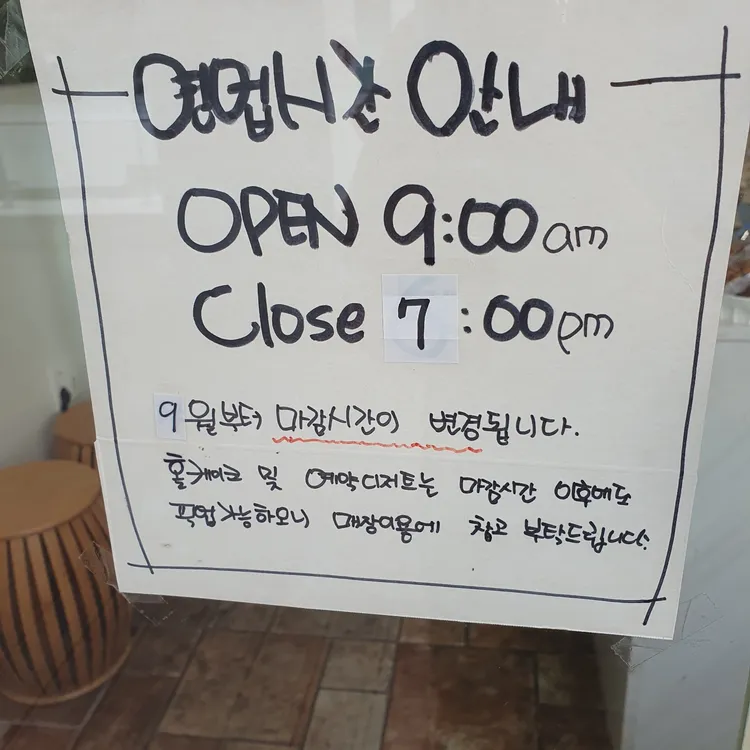 영업시간 안내
OPEN 9:00am
Close 7:00pm
9월부터 마감시간이 변경됩니다.
홀케이크 및 예약디저트는 마감시간 이후에도
픽업가능하오니 매장이용에 참고 부탁드립니다.